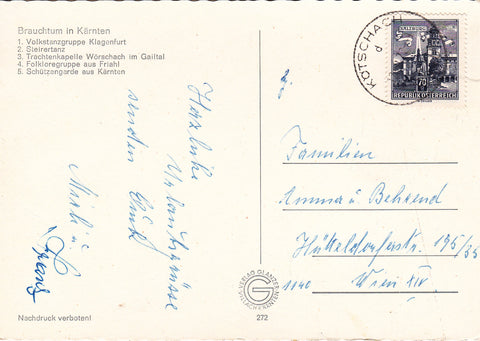 Brauchtum in Kärnten
1. Volkstanzgruppe Klagenfurt
2. Steirertanz
3. Trachtenkapelle Wörschach im Gailtal
4. Folkloregruppe aus Friahl
5. Schützengarde aus Kärnten
Herzliche
Urlaubsgrüsse
senden Euch
u.
Franz
Nachdruck verboten!
VERLAG GLANZER
VILLACH-KÄRNTEN
272
KÖTSCHACH
SALZBURG
70
REPUBLIK ÖSTERREICH
Familien
u. Behrend
Hütteldorferstr. 195/35
1140 Wien XIV